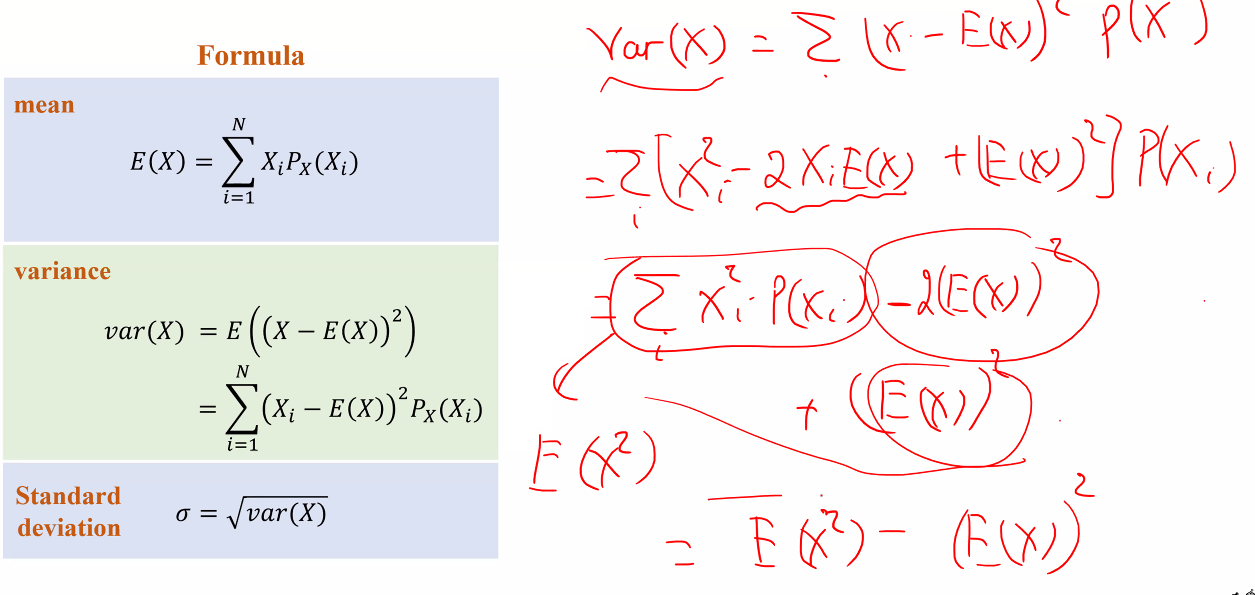 Formula
mean
E(X) = \sum_{i=1}^{N} X_i P_X(X_i)
variance
var(X) = E((X − E(X))^2)
= \sum_{i=1}^{N} (X_i − E(X))^2 P_X(X_i)
Standard
deviation
σ = \sqrt{var(X)}
Var(X) = \sum_{.} (X. − E(X))^2 P(X )
= \sum_i [X_i^2 − 2X_iE(X) + (E(X))^2] P(X_i)
= \sum_i X_i^2 · P(X_i) − 2(E(X))^2
+ (E(X))^2
E(X^2)
= E(X^2) − (E(X))^2